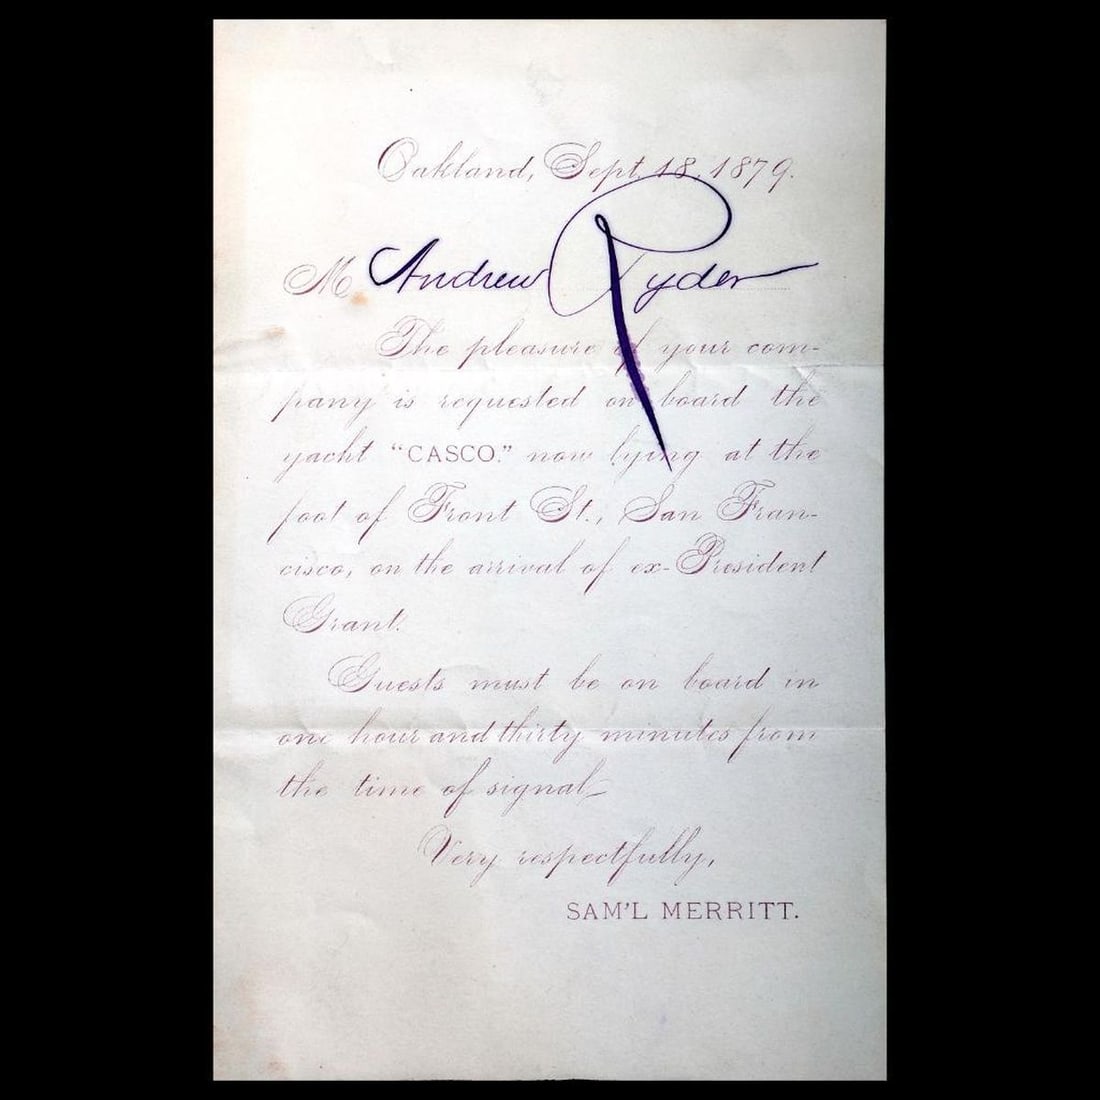 Oakland, Sept. 18. 1879.
M Andrew Ryder
The pleasure of your com-
pany is requested on board the
yacht "CASCO." now lying at the
foot of Front St., San Fran-
cisco, on the arrival of ex-President
Grant.
Guests must be on board in
one hour and thirty minutes from
the time of signal
Very respectfully,
SAM'L MERRITT.